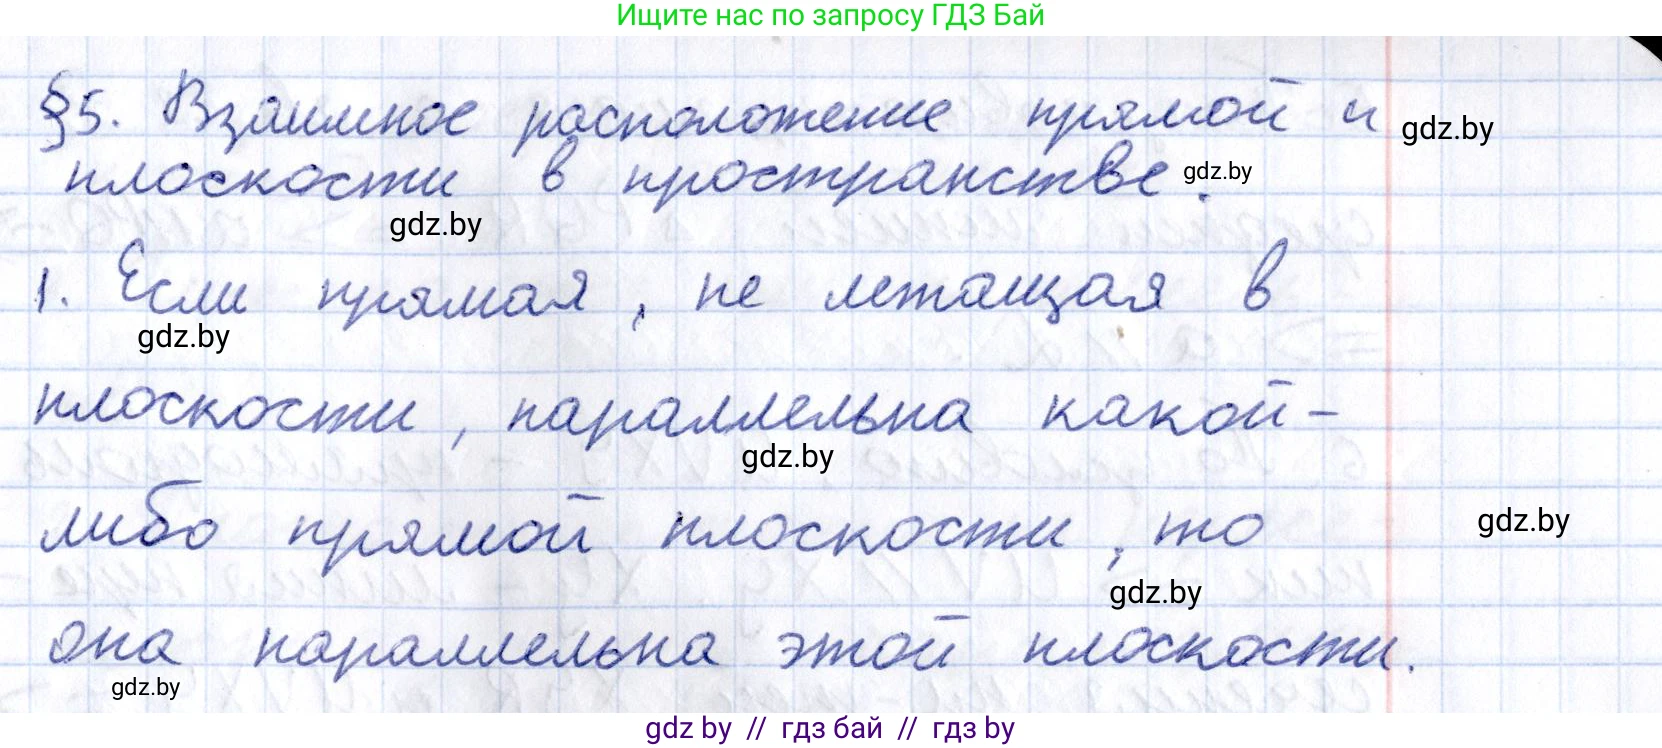 Ищите нас по запросу ГДЗ Бай
§5. Взаимное расположение прямой и gdz.by
плоскости в пространстве. gdz.by
gdz.by
1. Если прямая, не лежащая в
gdz.by
плоскости, параллельна какой-
gdz.by
либо прямой плоскости, то gdz.by
gdz.by
она параллельна этой плоскости.
gdz.by
gdz by // гдз бай // гдз by